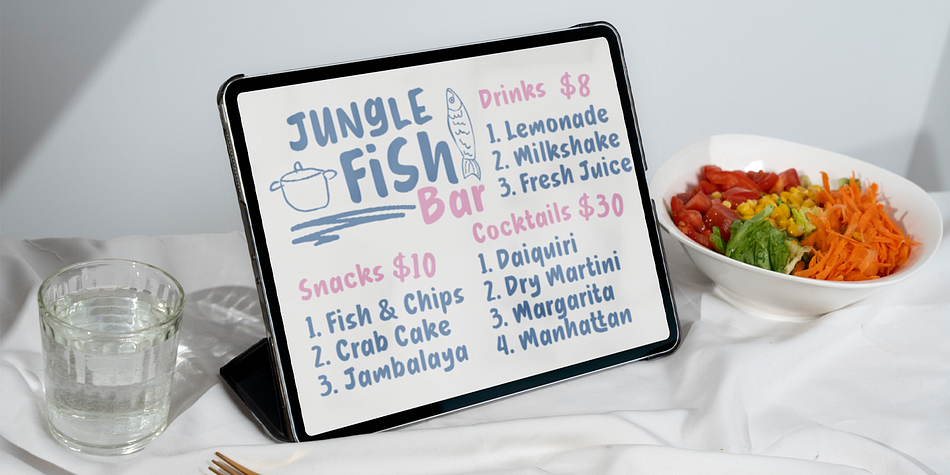 JUNGLE
Fish
Bar
Snacks $10
1. Fish & Chips
2. Crab Cake
3. Jambalaya
Drinks $8
1. Lemonade
2. Milkshake
3. Fresh Juice
Cocktails $30
1. Daiquiri
2. Dry Martini
3. Margarita
4. Manhattan